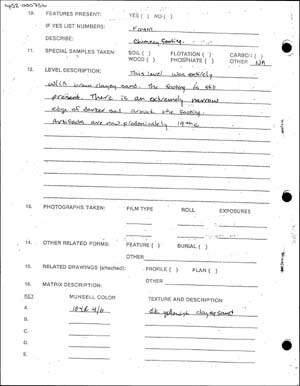 10. FEATURES PRESENT: YES ( ) NO ( )
IF YES LIST NUMBERS:
DESCRIBE: Chimney footing.
11. SPECIAL SAMPLES TAKEN: SOIL ( ) FLOTATION ( ) CARBON ( )
WOOD ( ) PHOSPHATE ( ) OTHER NA
12. LEVEL DESCRIPTION: This level was entirely
w/in brown clayey sand. The footing is still
present. There is an extremely narrow
edge of darker soil around the footing.
Artifacts are now predominately 19th c
13. PHOTOGRAPHS TAKEN: FILM TYPE ROLL EXPOSURES
14. OTHER RELATED FORMS: FEATURE ( ) BURIAL ( )
OTHER
15. RELATED DRAWINGS (attached): PROFILE ( ) PLAN ( )
OTHER
16. MATRIX DESCRIPTION:
KEY MUNSELL COLOR TEXTURE AND DESCRIPTION
A. 10YR 4/6 dk yellowish clayey sand
B.
C.
D.
E.